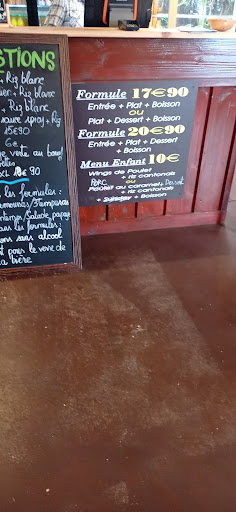 STIONS
Riz blanc
ier + Riz blanc
+ Riz blanc
sauce spray + Riz
15€90
6e
verte au bœuf
XL 15€90
les formules:
Samoussas/Tempuras
/Salade papay
ans les formules
ons sans alcool
t pour le verre de
la bière
Formule 17€90
Entrée + Plat + Boisson
ou
Plat + Dessert + Boisson
Formule 20€90
Entrée + Plat + Dessert
+ Boisson
Menu Enfant 10€
Wings de Poulet
+ riz cantonais
ou Porc
Poulet au caramel + Dessert
+ riz cantonais
+ Boisson